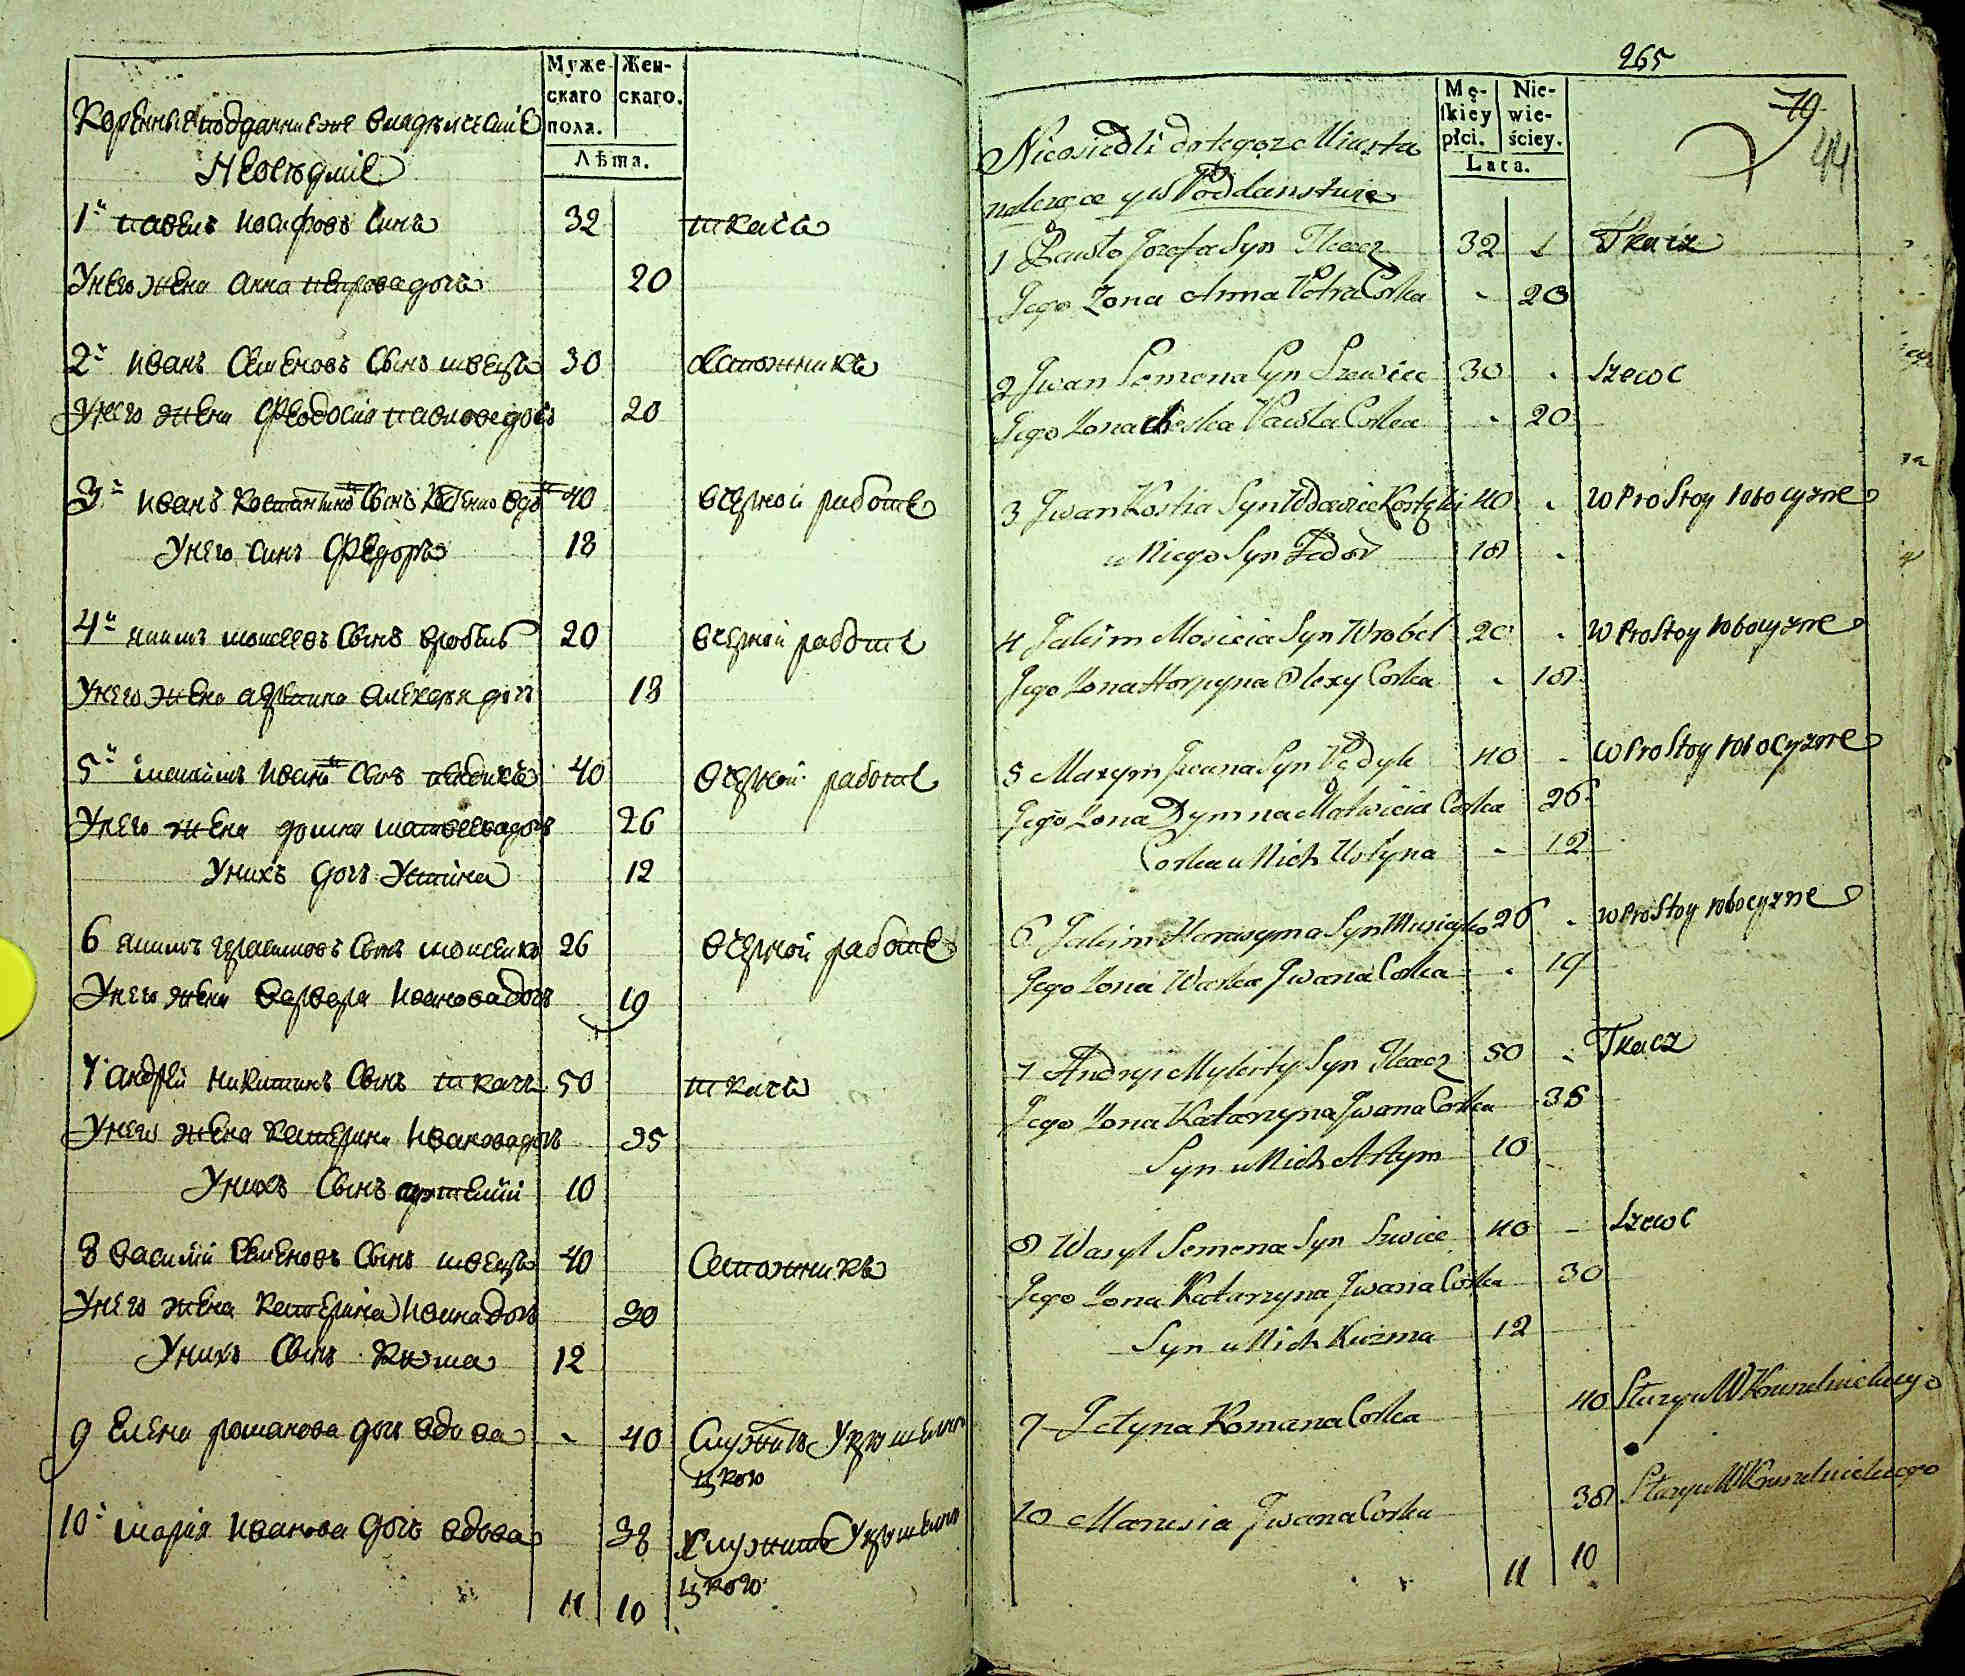 Муже-
скаго
пола.
Жен-
скаго.
Лѣта.
Коренные подданные же владѣлские
Неоседлие
1й павелъ иосифовъ Синъ 32 ткачъ
Унего жена анна петрова дочъ 20
2й иванъ Семеновъ Сынъ швецъ 30 Сапожникъ
Унего жена Феодосия павлова дочъ 20
3й иванъ Костантинъ Сынъ 40 вчерной работе
Унего синъ Федоръ 18
4й якимъ моисеевъ Сынъ вробель 20 вчерной работе
Унего жена алексея дочъ 18
5й максимъ иванъ Сынъ 40 вчерной работе
Унего жена домна матвеевадочъ 26
Унихъ дочъ Устина 12
6 якимъ герасимовъ Сынъ мойсенко 26 вчерной работе
Унего жена варвара ивановадочъ 19
7 андрей никитинъ Сынъ ткачъ 50 ткачъ
Унего жена катерина ивановадочъ 35
Унихъ Сынъ артемий 10
8 василий Семеновъ Сынъ швецъ 40 Сапожникъ
Унего жена катерина иванадочъ 30
Унихъ Сынъ Кузма 12
9 елена романова дочъ вдова 40 Служитъ У
цкого
10й мария иванова дочъ вдова 38 Служитъ У
цкого
11 10
265
79
44
Mę-
skiey
płci.
Nie-
wie-
ściey.
Lata.
Nieosiedli do tegoż Miasta
należące y w Poddanstwie
1 Pawło Jozefa Syn Tkacz 32 Tkacz
Jego Zona Anna Piotra Corka 20
2 Jwan Semena Syn Szwiec 30 Szewc
Jego Zona Pawła Corka 20
3 Jwan Kostia Syn Wdowice 40 w Prostoy robocyznie
u Niego Syn Fedor 18
4 Jakim Mosieia Syn Wrobel 20 w Prostoy robocyznie
Jego Zona Horpyna Olexy Corka 18
5 Maxym Jwana Syn Padyk 40 w Prostoy robocyznie
Jego Zona Dymna Matwieia Corka 26
Corka u Nich Ustyna 12
6 Jakim Harasyma Syn Musieyko 26 w Prostoy robocyznie
Jego Zona Warka Jwana Corka 19
7 Andryi Mykity Syn Tkacz 50 Tkacz
Jego Zona Katarzyna Jwana Corka 35
Syn u Nich Artym 10
8 Wasyl Semena Syn Szwiec 40 Szewc
Jego Zona Katarzyna Jwana Corka 30
Syn u Nich Kuzma 12
9 Jelyna Romana Corka 40 Służy u W
10 Marusia Jwana Corka 38 Służy u W
11 10